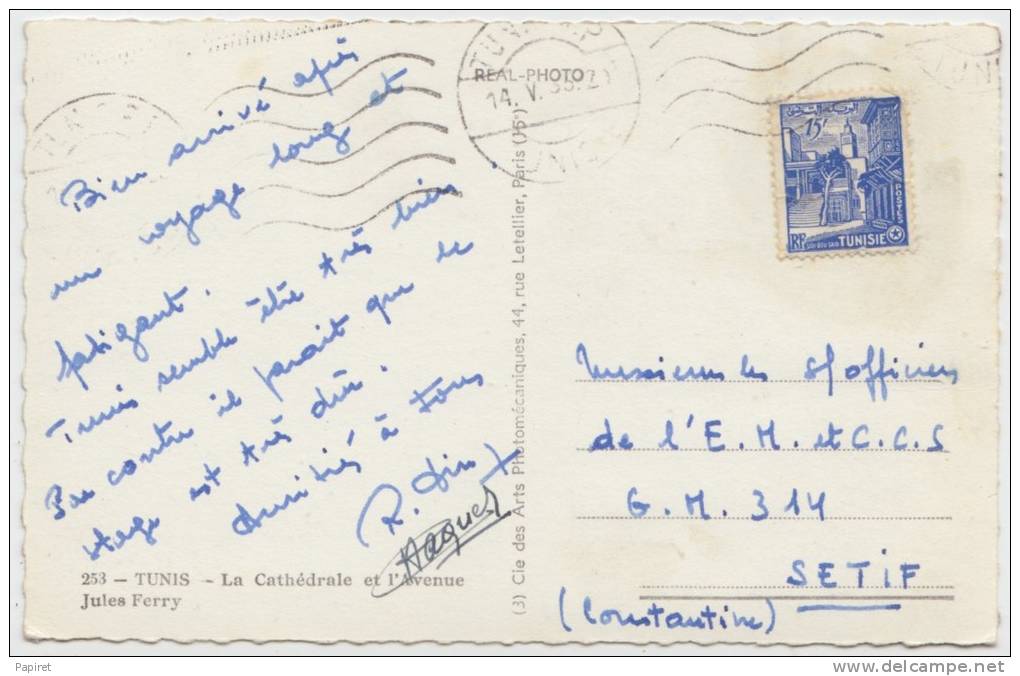 Bien arrivé après
un voyage long et
fatigant.
Tunis semble été très bien
Par contre il parait que le
stage est très dur.
Amitiés à tous
R.
Haques
253 — TUNIS — La Cathédrale et l'Avenue
Jules Ferry
REAL-PHOTO
14. V.
(3) Cie des Arts Photomécaniques, 44, rue Letellier, Paris (15e)
15f
POSTES
RF
SIDI-BOU-SAID
TUNISIE
Messieurs les S/officiers
de l'E.M. et C.C.S
G.M. 314
SETIF
(Constantine)
Papiret
delcampe.net